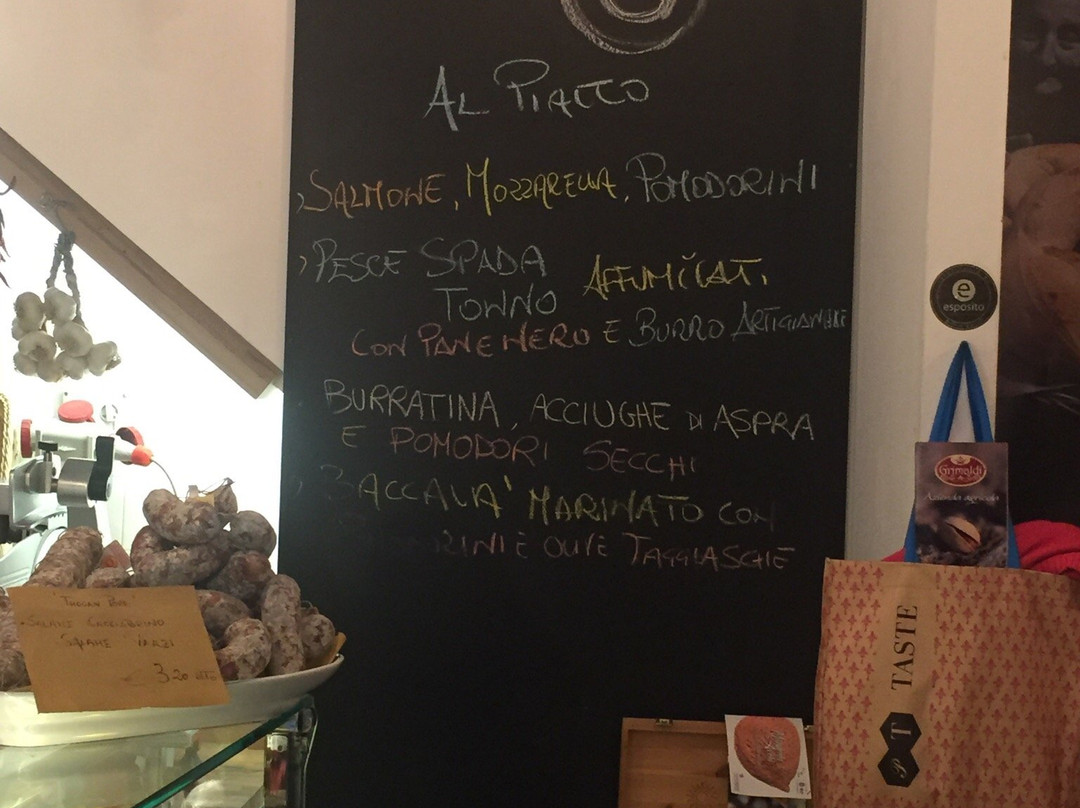 AL PIATTO
SALMONE, MOZZARELLA, POMODORINI
PESCE SPADA
TONNO AFFUMICATI
CON PANE NERO E BURRO ARTIGIANALE
BURRATINA, ACCIUGHE DI ASPRA
E POMODORI SECCHI
BACCALA' MARINATO CON
E OLIVE TAGGIASCHE
SALAME
SALAME VARZI
3.20
e
esposito
Grimaldi
Azienda agricola
TASTE
PT